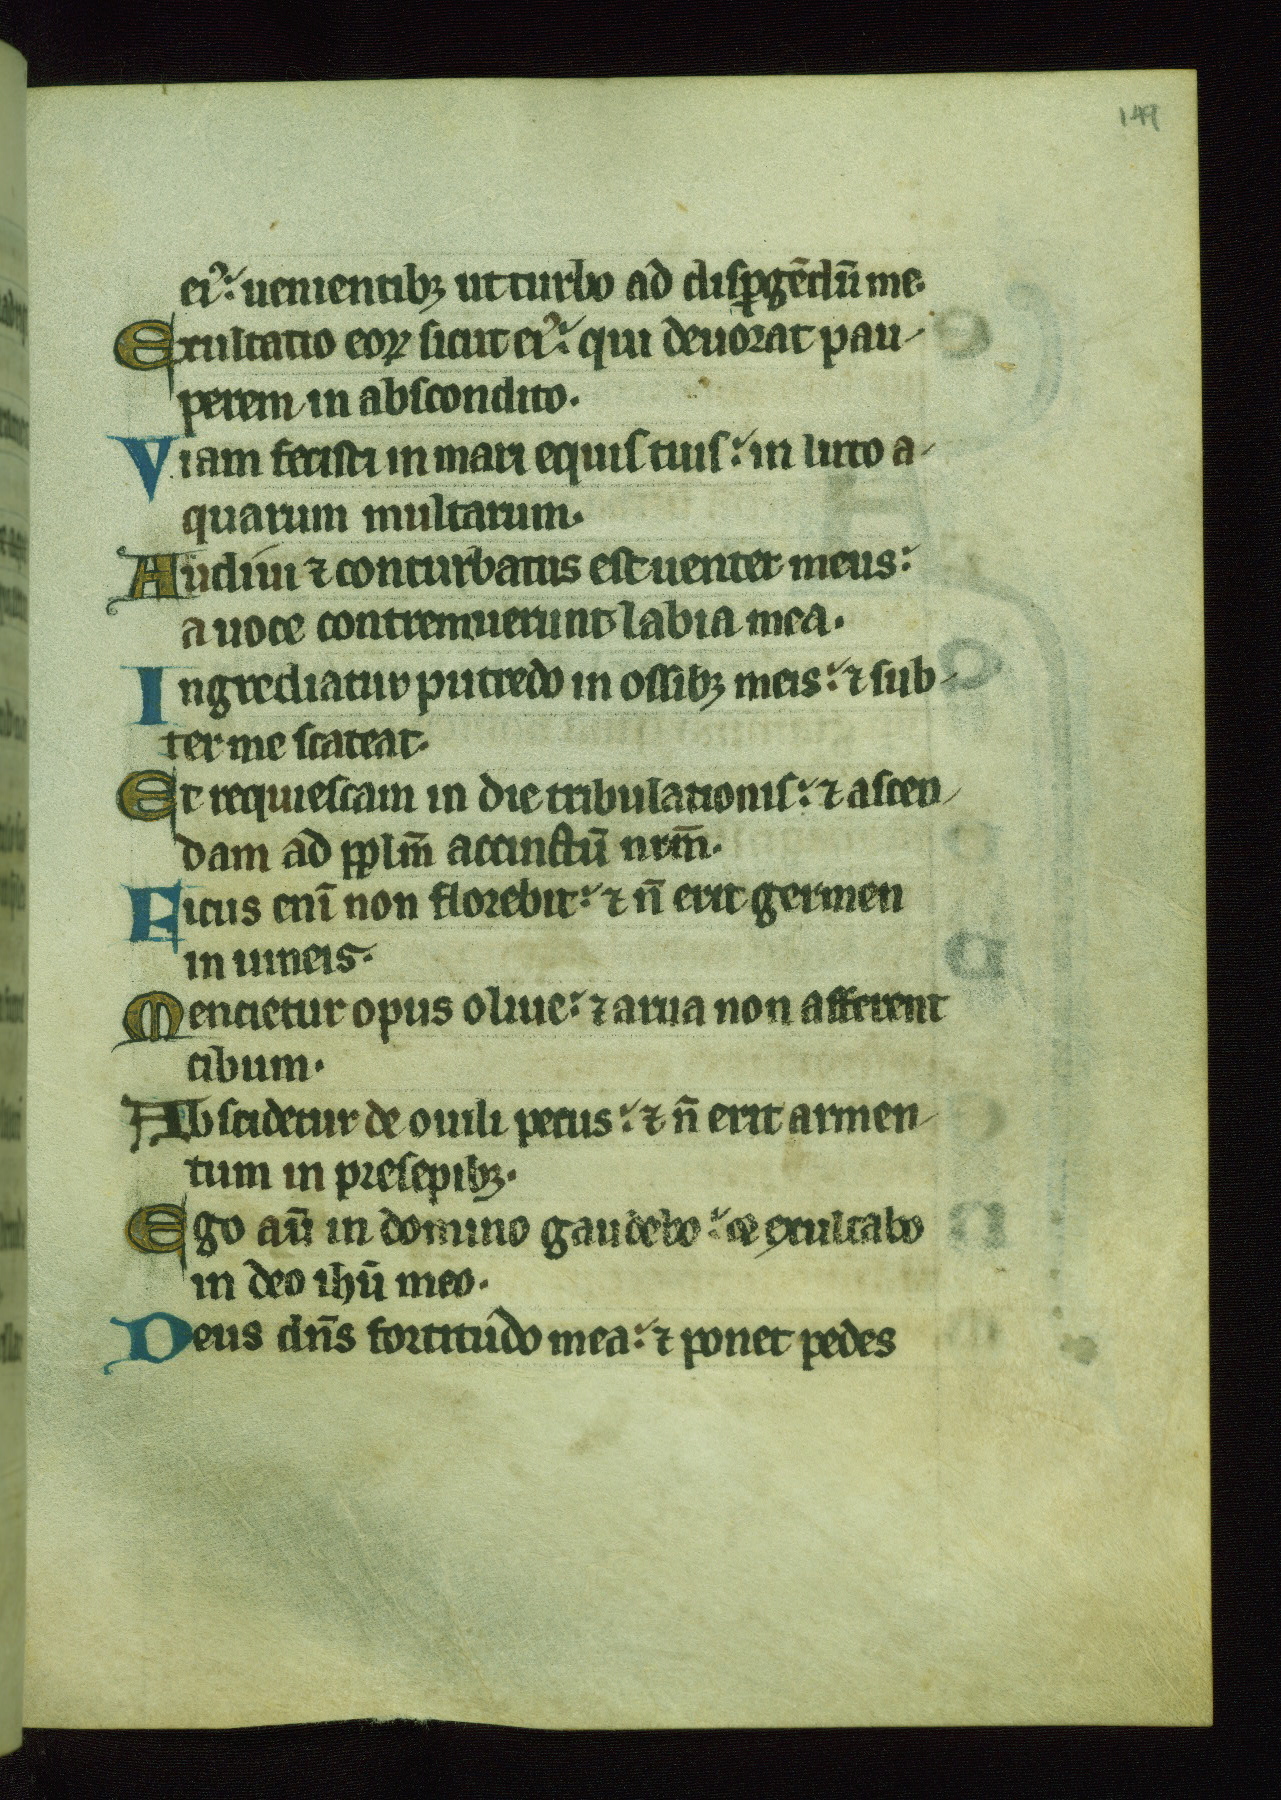 149
ei᷒: uenientibꝫ ut turbo ad disꝑgēdū me.
Exultatio eoꝝ sicut ei᷒: qui deuorat pau-
perem in abscondito.
Viam fecisti in mari equis tuis: in luto a-
quarum multarum.
Audiui ⁊ conturbatus est uenter meus:
a uoce contremuerunt labia mea.
Ingrediatur putredo in ossibꝫ meis: ⁊ sub-
ter me scateat.
Et requiescam in die tribulationis: ⁊ ascen-
dam ad pplm̄ accinctū nrm̄.
Ficus eni̅ non florebit: ⁊ n̄ erit germen
in uineis.
Mencietur opus oliue: ⁊ arua non afferent
cibum.
Abscidetur de ouili pecus: ⁊ n̄ erit armen-
tum in presepibꝫ.
Ego aū in domino gaudebo: et exultabo
in deo ihū meo.
Deus dn̄s fortitudo mea: ⁊ ponet pedes